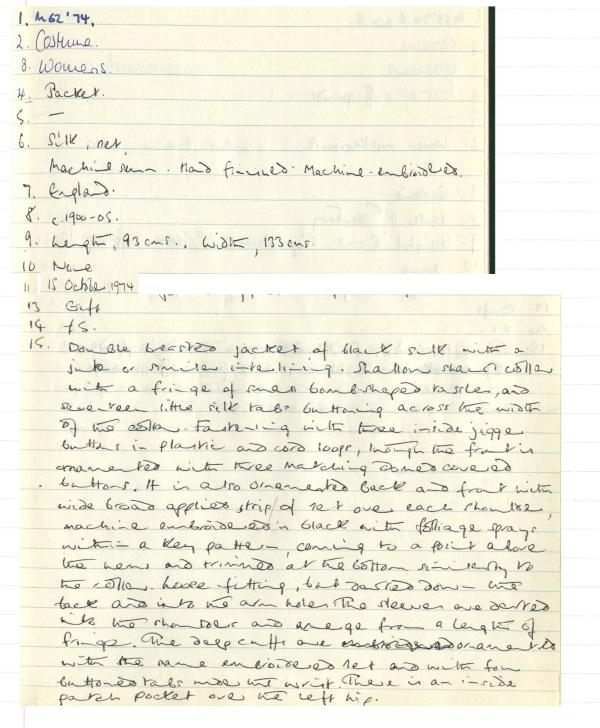 1. M62'74.
2. Costume.
3. Womens.
4. Jacket.
5. —
6. Silk, net.
Machine sewn. Hand finished. Machine-embroidered.
7. England.
8. c.1900-05.
9. Length, 93 cms., Width, 133 cms.
10 None
11 15 October 1974
13 Gift
14 £5.
15. Double breasted jacket of black silk with a
jute or similar interlining. Shallow shawl collar
with a fringe of small bomb shaped tassles, and
seventeen little silk tabs buttoning across the width
of the collar. Fastening with three inside jigger
buttons in plastic and cord loops, though the front is
ornamented with three matching domed covered
buttons. It is also ornamented back and front with
wide broad applied strip of net over each shoulder,
machine embroidered in black with foliage sprays
within a key pattern, coming to a point above
the hems and trimmed at the bottom similarly to
the collar. Loose fitting, but darted down the
back and into the arm holes. The sleeves are darted
into the shoulder and emerge from a length of
fringe. The deep cuffs are ornamented
with the same embroidered net and with four
buttoned tabs inside the wrist. There is an inside
patch pocket over the left hip.